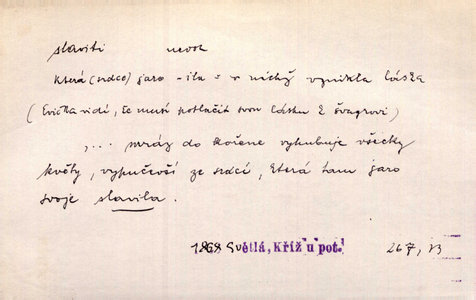 slaviti nevok
která (srdce) jaro -ila = v nichž vznikla láska
(Evička vidí, že musí potlačit svou lásku k švagrovi)
,... mráz do kořene vyhubuje všecky
květy, vypučevší ze srdcí, která tam jaro
svoje slavila.
1868 Světlá, Kříž u pot. 267, 13